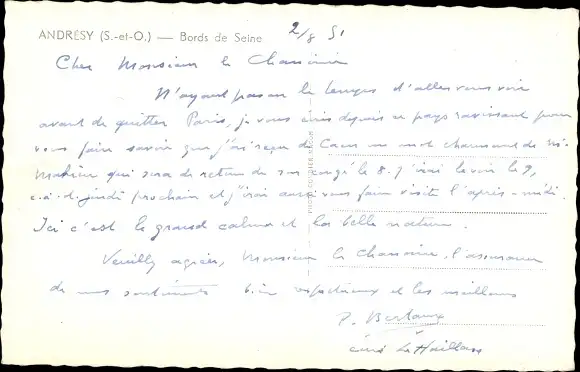 ANDRÉSY (S.-et-O.) — Bords de Seine 2/8 51
Cher Monsieur le Chanoine
N'ayant pas eu le temps d'aller vous voir
avant de quitter Paris, je vous écris depuis ce pays ravissant pour
vous faire savoir que j'ai reçu de Caen un mot charmant de Mr
qui sera de retour de son congé le 8. J'irai le voir le 9,
c.à.d. jeudi prochain et j'irai aussi vous faire visite l'après-midi.
Ici c'est le grand calme et la belle nature.
Veuillez agréer, Monsieur le Chanoine, l'assurance
de mes sentiments bien respectueux et les meilleurs
P.
curé